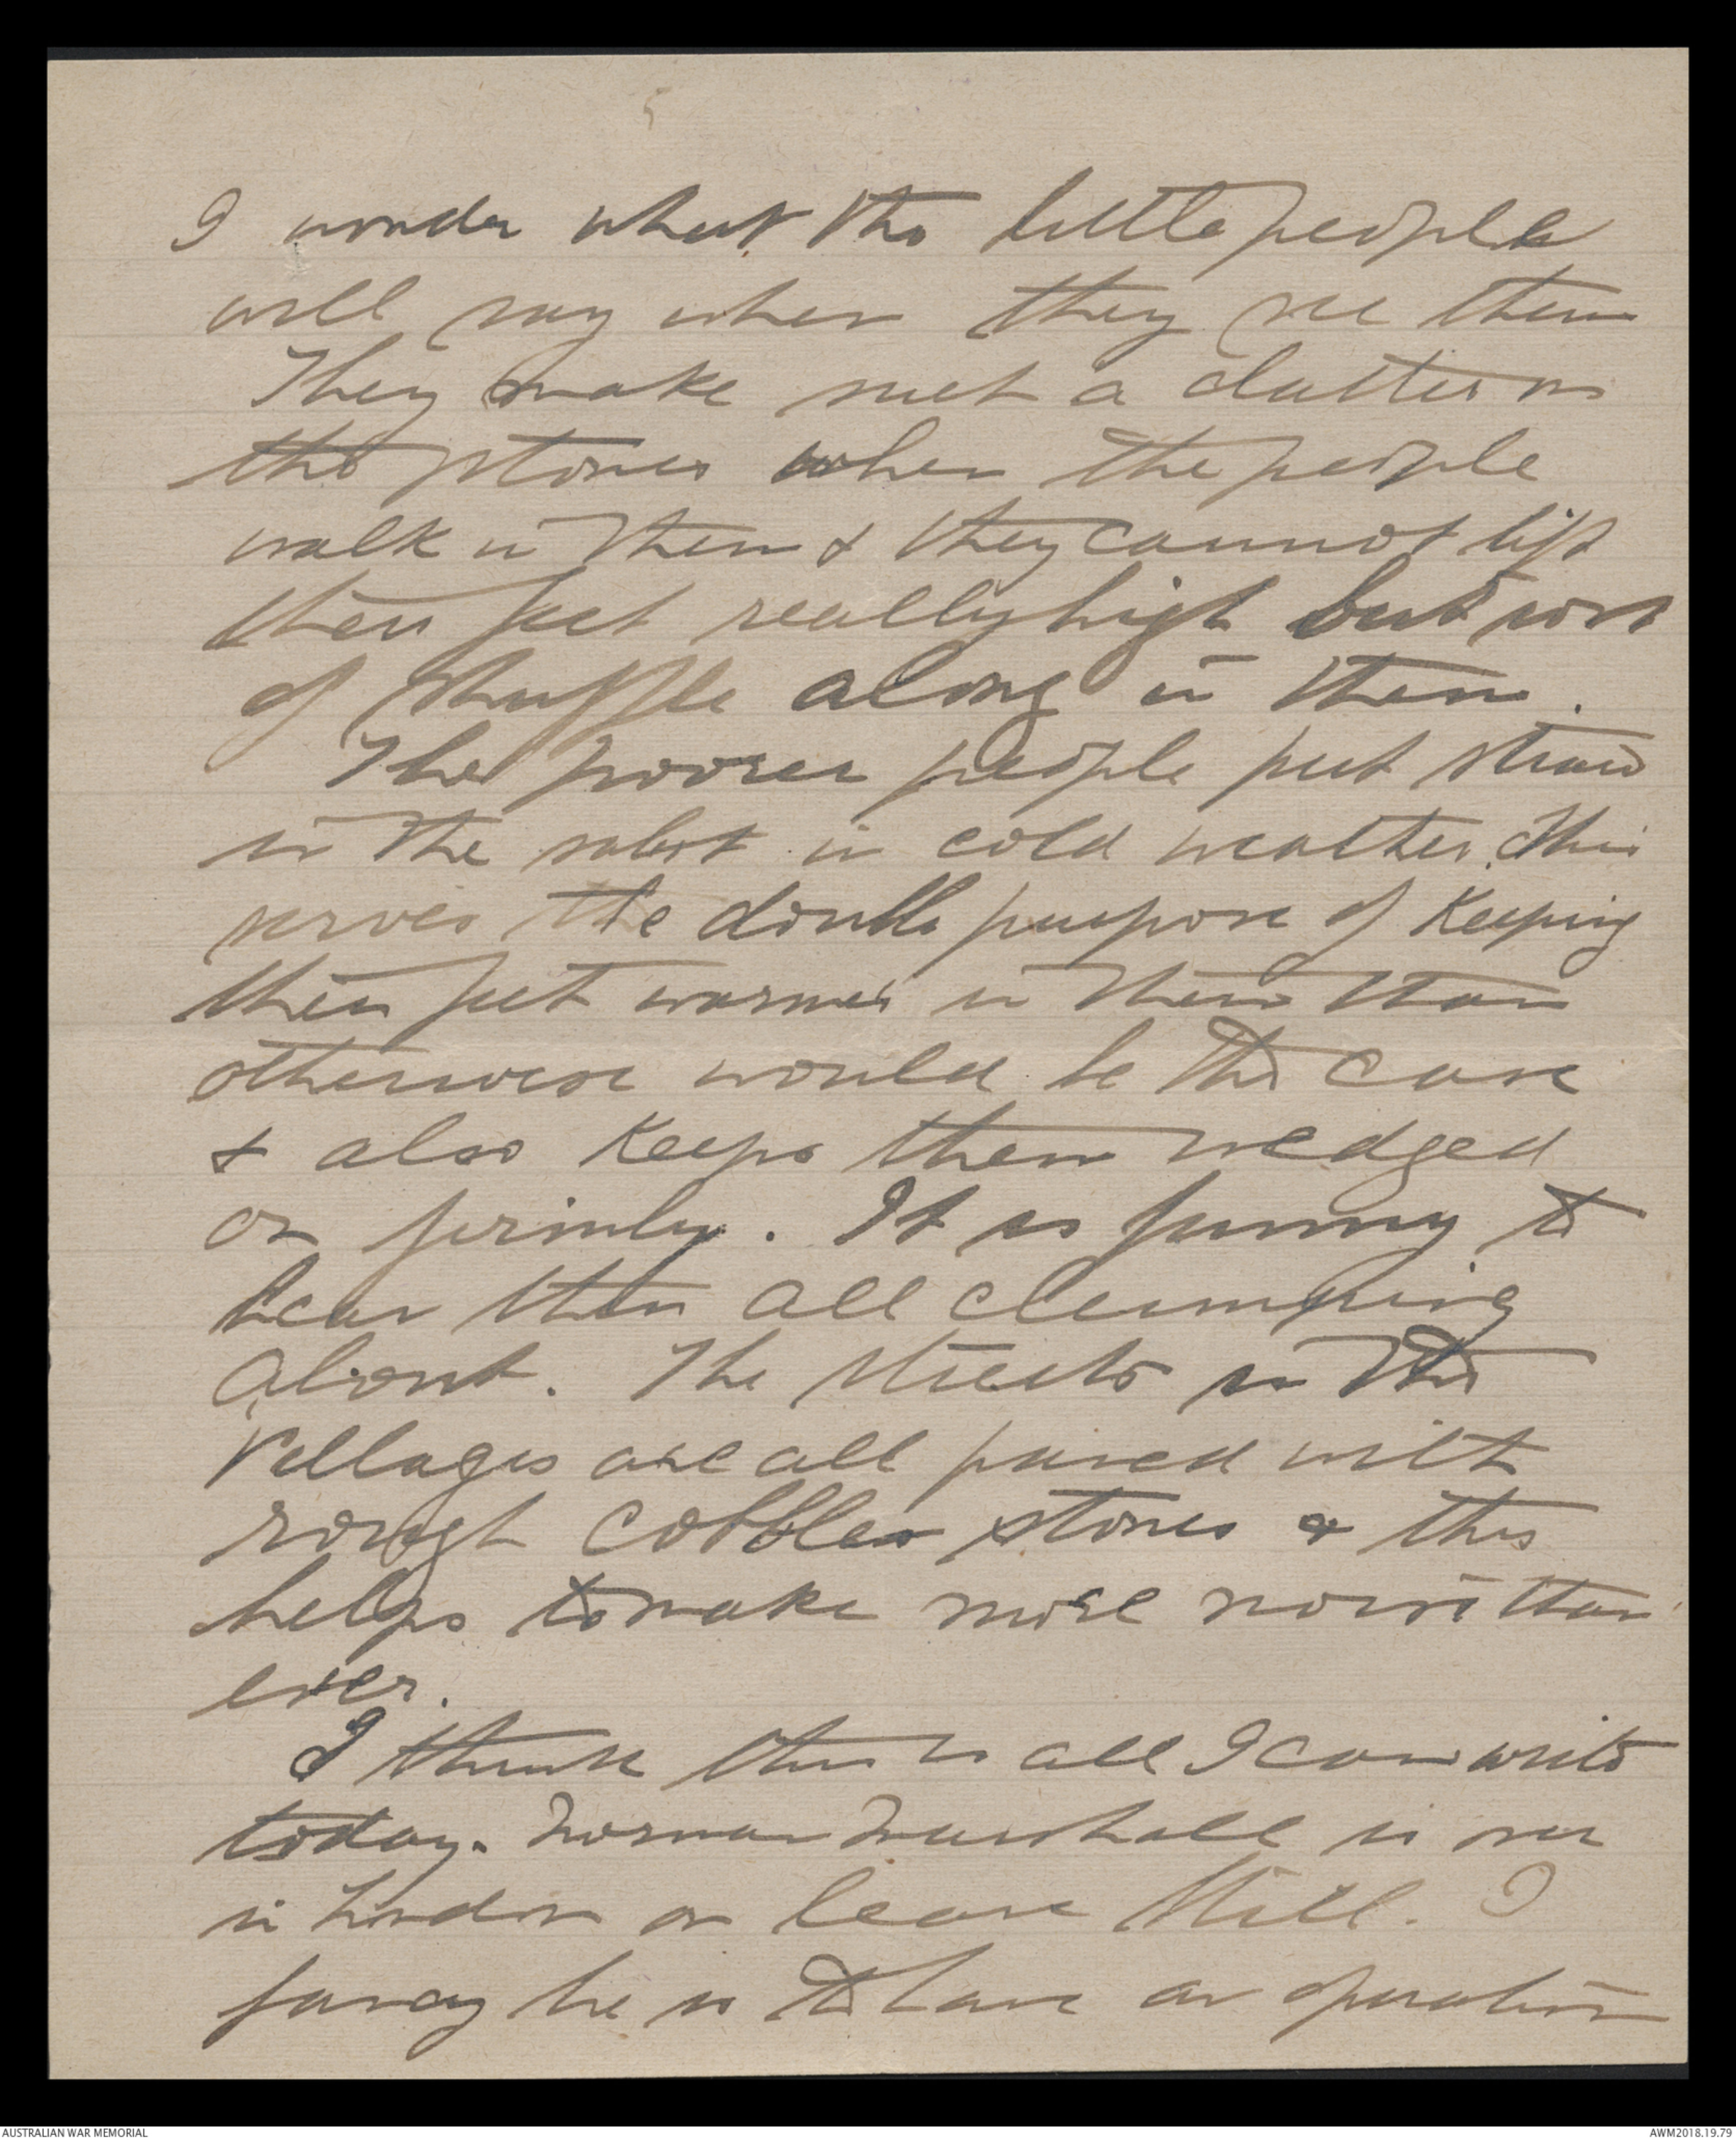 5
I wonder what the little people
will say when they see them
They make such a clatter on
the stones when the people
walk in them & they cannot lift
their feet really high but sort
of shuffle along in them.
The poorer people put straw
in the sabot in cold weather. This
serves the double purpose of keeping
their feet warmer in them than
otherwise would be the case
& also keeps them wedged
on firmly. It is funny to
hear them all clumping
about. The streets in the
Villages are all paved with
rough cobbles stones & this
helps to make more noise than
ever.
I think this is all I can write
today. Norman Marshall is over
in London on leave still. I
fancy he is to have an operation
AUSTRALIAN WAR MEMORIAL
AWM2018.19.79